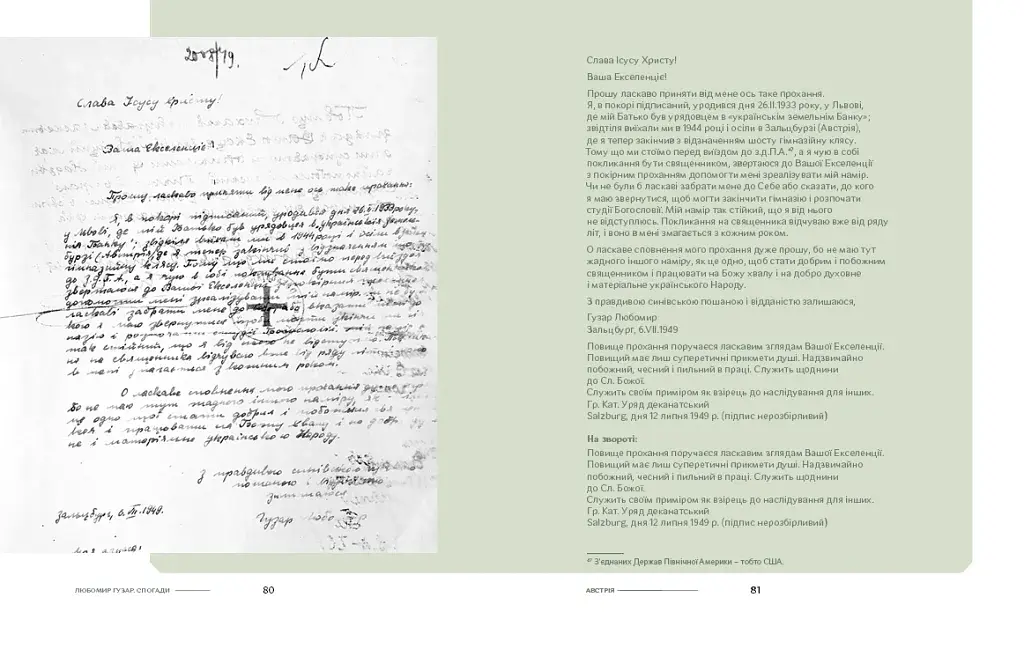 2008/49.
Слава Ісусу Христу!
Ваша Екселенціє!
Прошу ласкаво приняти від мене ось таке прохання:
Я, в покорі підписаний, уродився дня 26.II.1933 року,
у Львові, де мій Батько був урядовцем в "українськім земель-
нім Банку"; звідтіля виїхали ми в 1944 році і осіли в Зальц-
бурзі (Австрія), де я тепер закінчив з відзначенням шосту
гімназійну клясу. Тому що ми стоїмо перед виїздом
до З.Д.П.А., а я чую в собі покликання бути священником,
звертаюся до Вашої Екселенції з покірним проханням
допомогти мені зреалізувати мій намір. Чи не були б
ласкаві забрати мене до Себе або сказати, до
кого я маю звернутися, щоб могти закінчити гім-
назію і розпочати студії Богословії. Мій намір є
так стійкий, що я від нього не відступлюсь. Покликан-
ня на священника відчуваю вже від ряду літ,
в мені змагається з кожним роком.
О ласкаве сповнення мого прохання дуже прошу,
бо не маю тут жадного іншого наміру, як
це одно, щоб стати добрим і побожним священ-
і працювати на Божу хвалу і на добро ду-
не і матеріяльне українського Народу.
З правдивою синівською
пошаною і відданістю
залишаюся
Зальцбург, 6.VII.1949.
Гузар Любомир
Слава Ісусу Христу!
Ваша Екселенціє!
Прошу ласкаво приняти від мене ось таке прохання.
Я, в покорі підписаний, уродився дня 26.II.1933 року, у Львові,
де мій Батько був урядовцем в «українськім земельнім Банку»;
звідтіля виїхали ми в 1944 році і осіли в Зальцбурзі (Австрія),
де я тепер закінчив з відзначенням шосту гімназійну клясу.
Тому що ми стоїмо перед виїздом до з.д.П.А.⁴⁷, а я чую в собі
покликання бути священником, звертаюся до Вашої Екселенції
з покірним проханням допомогти мені зреалізувати мій намір.
Чи не були б ласкаві забрати мене до Себе або сказати, до кого
я маю звернутися, щоб могти закінчити гімназію і розпочати
студії Богословії. Мій намір так стійкий, що я від нього
не відступлюсь. Покликання на священника відчуваю вже від ряду
літ, і воно в мені змагається з кожним роком.
О ласкаве сповнення мого прохання дуже прошу, бо не маю тут
жадного іншого наміру, як це одно, щоб стати добрим і побожним
священником і працювати на Божу хвалу і на добро духовне
і матеріальне українського Народу.
З правдивою синівською пошаною і відданістю залишаюся,
Гузар Любомир
Зальцбург, 6.VII.1949
Повище прохання поручаєся ласкавим зглядам Вашої Екселенції.
Повищий має лиш суперетичні прикмети душі. Надзвичайно
побожний, чесний і пильний в праці. Служить щоднини
до Сл. Божої.
Служить своїм приміром як взірець до наслідування для інших.
Гр. Кат. Уряд деканатський
Salzburg, дня 12 липня 1949 р. (підпис нерозбірливий)
На звороті:
Повище прохання поручаєся ласкавим зглядам Вашої Екселенції.
Повищий має лиш суперетичні прикмети душі. Надзвичайно
побожний, чесний і пильний в праці. Служить щоднини
до Сл. Божої.
Служить своїм приміром як взірець до наслідування для інших.
Гр. Кат. Уряд деканатський
Salzburg, дня 12 липня 1949 р. (підпис нерозбірливий)
⁴⁷ З'єднаних Держав Північної Америки – тобто США.
ЛЮБОМИР ГУЗАР. СПОГАДИ 80
АВСТРІЯ 81